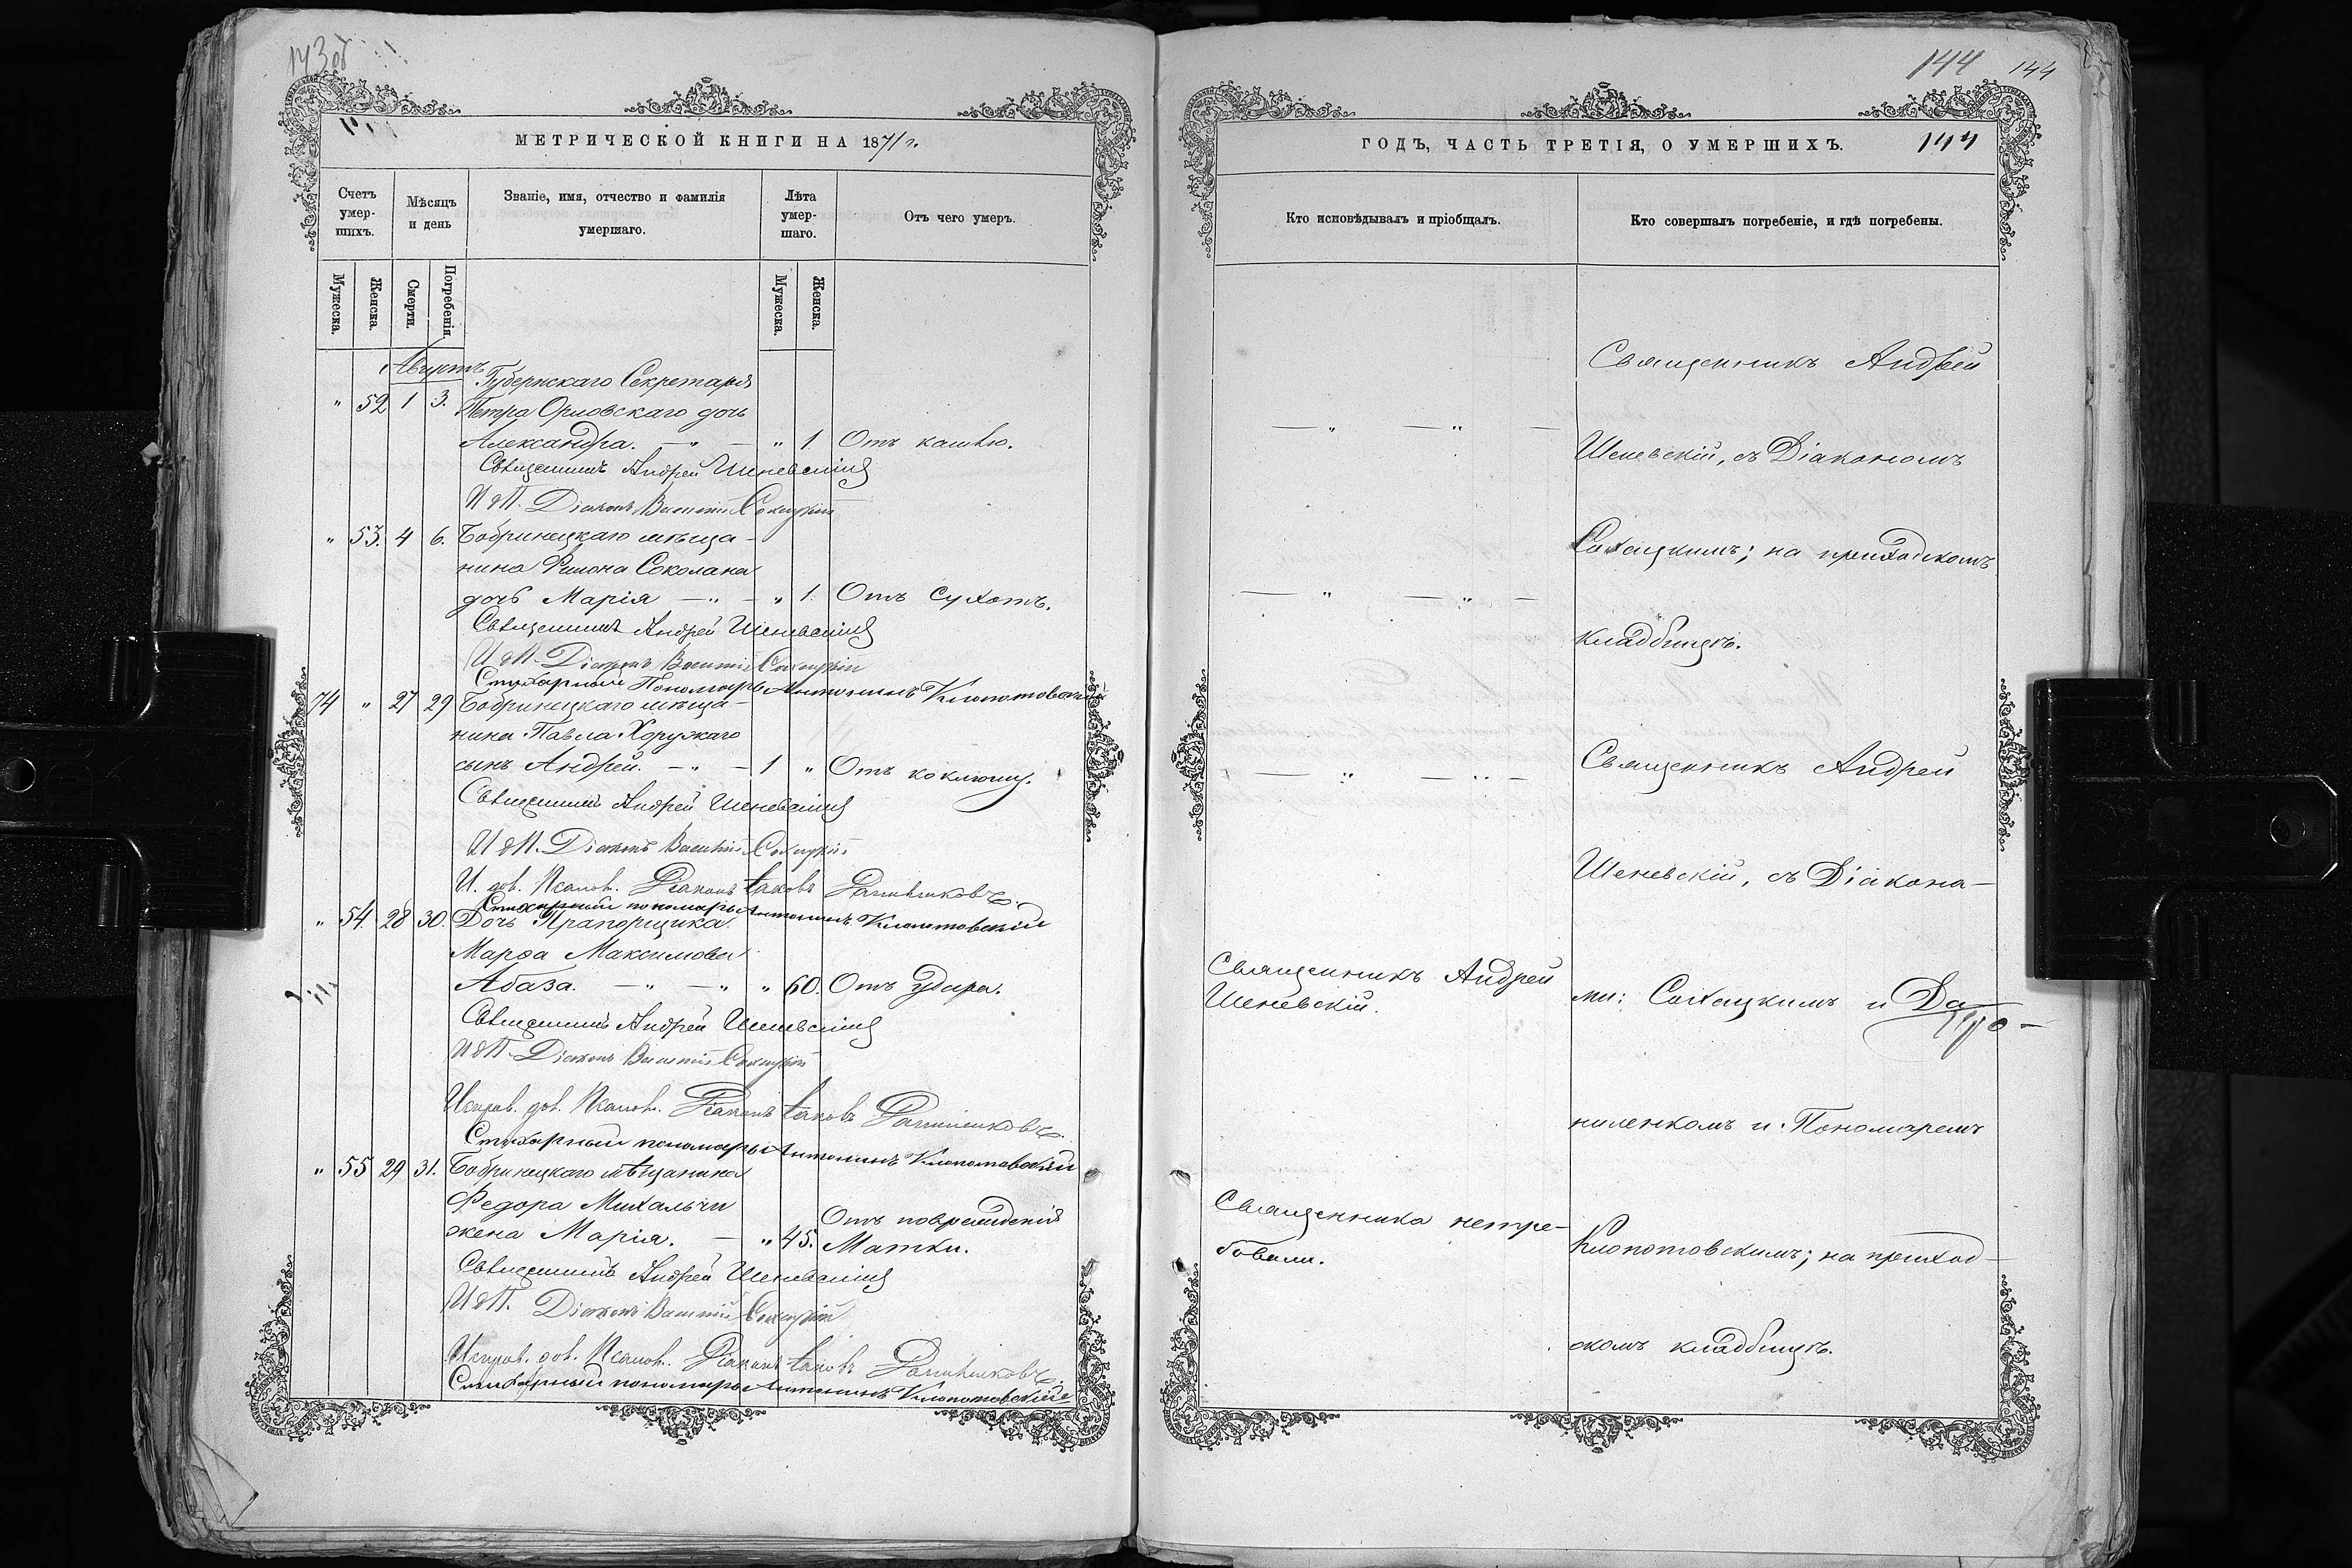 143об
МЕТРИЧЕСКОЙ КНИГИ НА 1871 г.
Счетъ умер-шихъ.
Мѣсяцъ и день
Званіе, имя, отчество и фамилія умершаго.
Лѣта умер-шаго.
Отъ чего умеръ.
Мужеска.
Женска.
Смерти.
Погребенія.
Мужеска.
Женска.
Августъ
Губернскаго Секретаря
" 52 1 3. Петра Орловскаго дочь
Александра. — " — " 1. Отъ кашлю.
Священникъ Андрей Шеневскій
И д П. Діаконъ Василій Сохацкій
" 53. 4 6. Бобринецкаго мѣща-
нина Филона Соколана
дочь Марія — " — " 1. Отъ Сухотъ.
Священникъ Андрей Шеневскій
И д П. Діаконъ Василій Сохацкій
Стихарный Пономарь Антонинъ Клопотовскій
74 " 27 29 Бобринецкаго мѣща-
нина Павла Хоружаго
сынъ Андрей. — " — 1 " Отъ коклюшу.
Священникъ Андрей Шеневскій
И д П. Діаконъ Василій Сохацкій
И. дол. Псалом. Діаконъ Іаковъ
Стихарный пономарь Антонинъ Клопотовскій
" 54. 28 30. Дочь Прапорщика
Марѳа Максимова
Абаза. — " — " " 60. Отъ Удара.
Священникъ Андрей Шеневскій
И д П. Діаконъ Василій Сохацкій
Исправ. дол. Псалом. Діаконъ Іаковъ
Стихарный пономарь Антонинъ Клопотовскій
" 55 29 31. Бобринецкаго мѣщанина
Федора Михальчи
жена Марія. — " 45. Отъ поврежденія
Матки.
Священникъ Андрей Шеневскій
И д П. Діаконъ Василій Сохацкій
Исправ. дол. Псалом. Діаконъ Іаковъ
Стихарный пономарь Антонинъ Клопотовскій
144 144
ГОДЪ, ЧАСТЬ ТРЕТІЯ, О УМЕРШИХЪ. 144
Кто исповѣдывалъ и пріобщалъ.
Кто совершалъ погребеніе, и гдѣ погребены.
Священникъ Андрей
— " — " —
Шеневскій, съ Діакономъ
Сохацкимъ; на приходскомъ
— " — " —
кладбищѣ.
Священникъ Андрей
— " — " —
Шеневскій, съ Діакона-
Священникъ Андрей
Шеневскій.
ми: Сохацкимъ и Да
ниленкомъ и Пономаремъ
Священника нетре-
бовали.
Клопотовскимъ; на приход-
скомъ кладбищѣ.